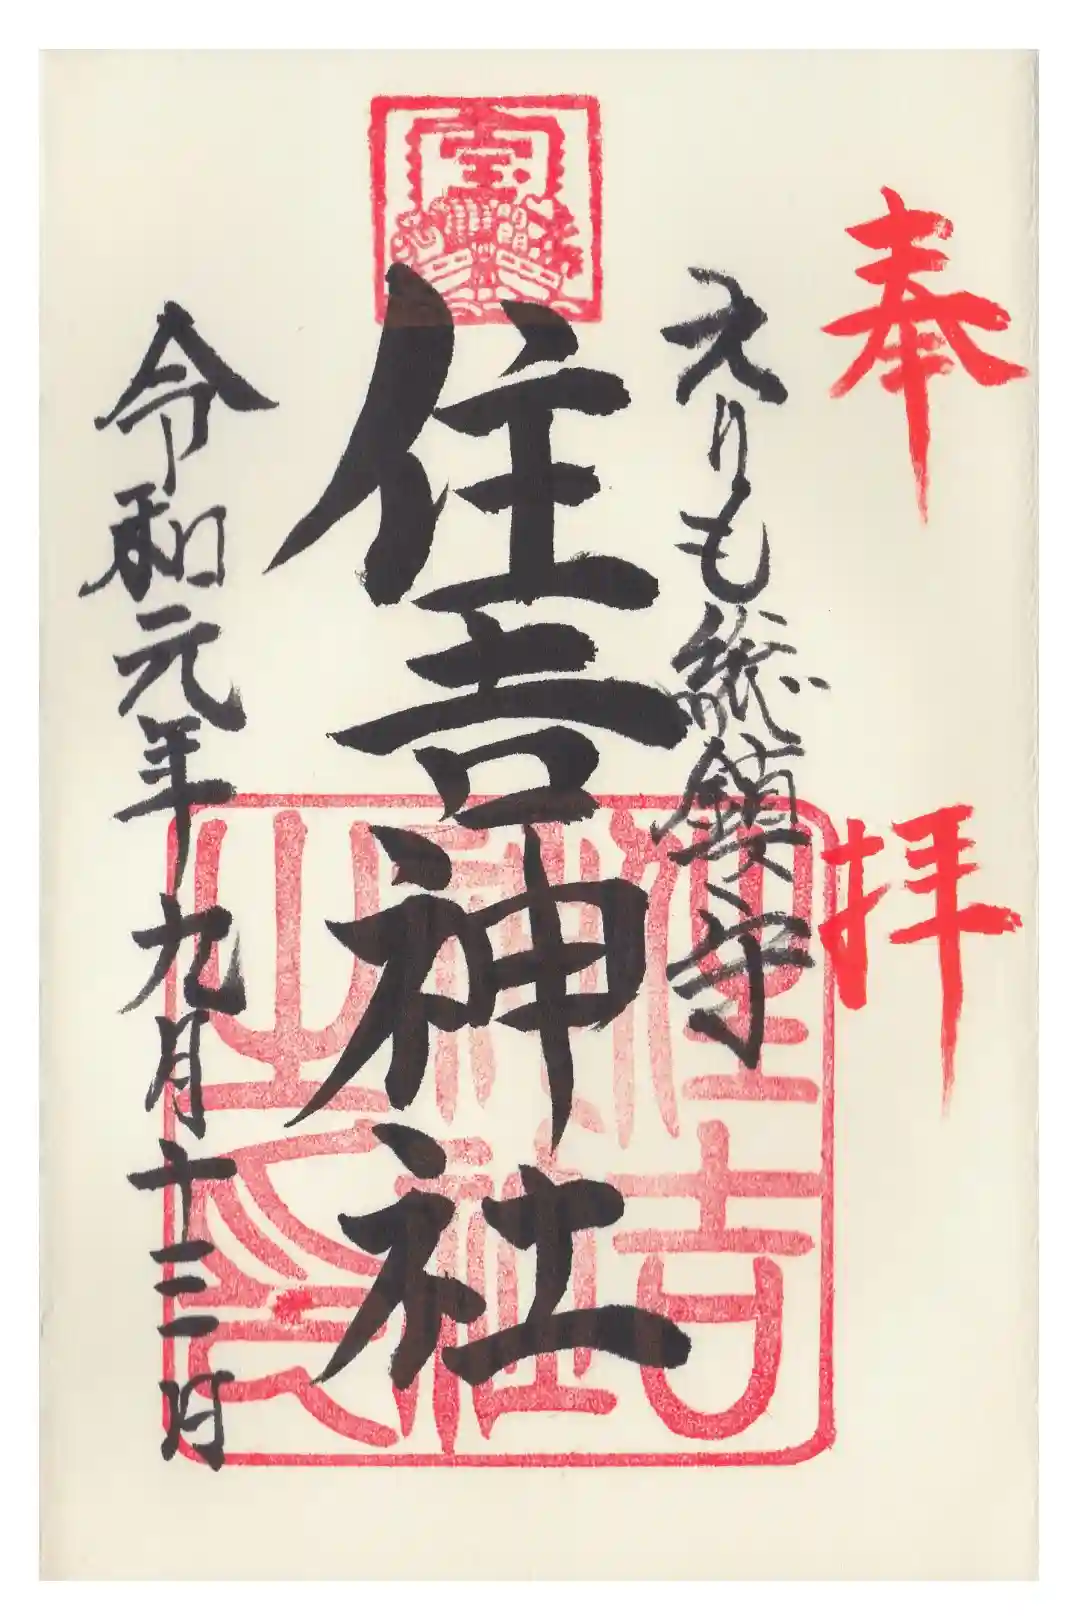 奉拝
えりも総鎮守
住吉神社
令和元年九月十三日
宝
住吉神社之印